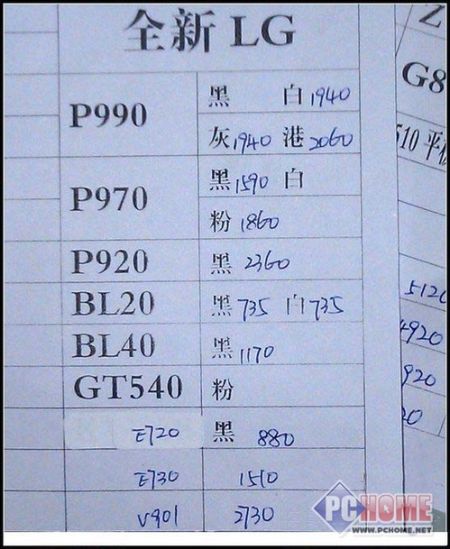 全新 LG
P990 黑 白1940
灰1940 港2060
P970 黑1590 白
粉1860
P920 黑 2360
BL20 黑735 白735
BL40 黑1170
GT540 粉
E720 黑 880
E730 1510
V901 2730
Z
G8
510 平
5120
4920
920
20
PCHOME
WWW.PCHOME.NET